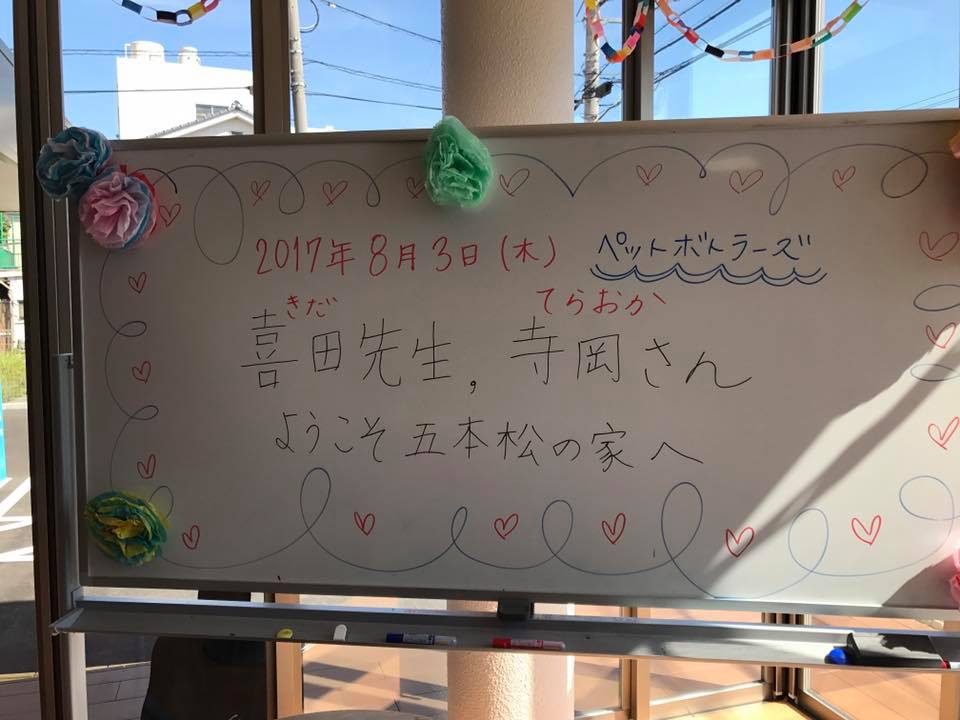 2017年8月3日(木) ペットボトラーズ
きだ てらおか
喜田先生, 寺岡さん
ようこそ 五本松の家へ